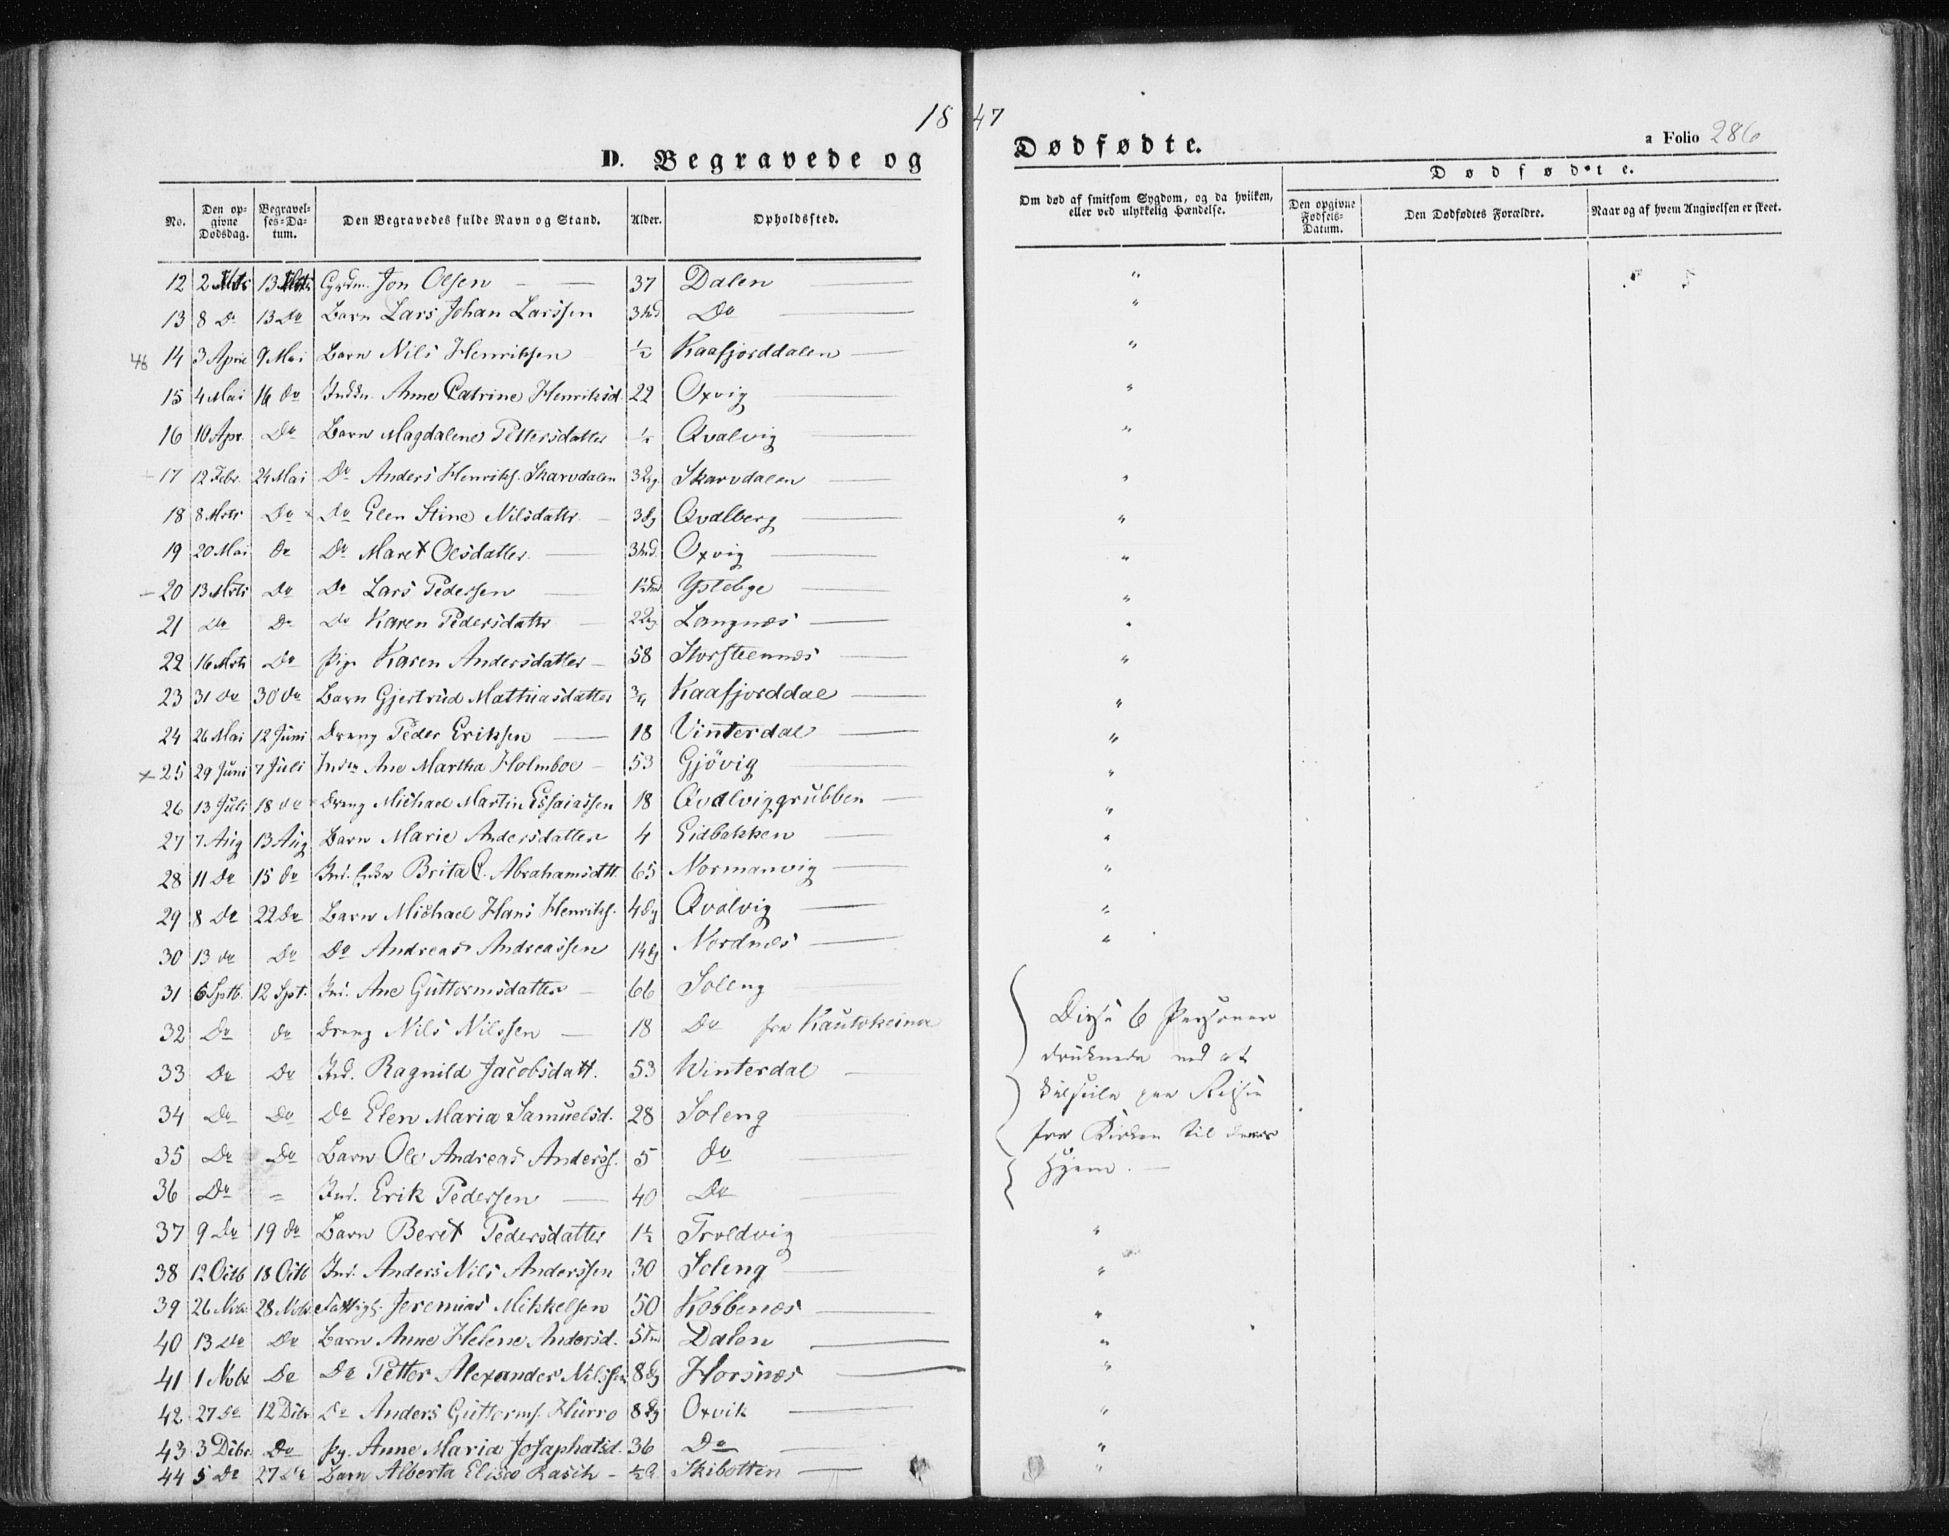 1847
D. Begravede og Dødfødte.
a Folio 286
No. | Den opgivne Dødsdag. | Begravelses-Datum. | Den Begravedes fulde Navn og Stand. | Alder. | Opholdssted. | Om død af smitsom Sygdom, og da hvilken, eller ved ulykkelig Hændelse. | Dødfødte. | Den opgivne Fødsels-Datum. | Den Dødfødtes Forældre. | Naar og af hvem Angivelsen er skeet.
12 | 2 Mrts | 13 Mrts | Grdm. Jon Olsen | 37 | Dalen | "
13 | 8 Do | 13 Do | Barn Lars Johan Larssen | 3 | Do | "
14 | 3 April | 9 Mai | Barn Nils Henriksen | ½ | Kaafjorddalen | "
15 | 4 Mai | 16 do | Anne Catrine Henriksd. | 22 | Oxvig | "
16 | 10 Apr. | Do | Barn Magdalene Pettersdatter | ½ | Qvalvig | "
17 | 12 Febr. | 24 Mai | Do Anders Henriks. Skarvdalen | 3 | Skarvdalen | "
18 | 8 Mrts | Do | Do Elen Stine Nilsdattr. | 3 | Qvalberg | "
19 | 20 Mai | do | Do Maret Olsdatter | 3 | Oxvig | "
20 | 13 Mrts | Do | Do Lars Pedersen | 1½ | Ystebye | "
21 | Do | Do | Do Karen Pedersdattr | 22 | Langnæs | "
22 | 16 Mrts | Do | Pige Karen Andersdatter | 58 | Storsteennæs | "
23 | 31 do | 30 do | Barn Gjertrud Mathiasdatter | ¾ | Kaafjorddal | "
24 | 26 Mai | 12 Juni | Dreng Peder Eriksen | 18 | Vinterdal | "
25 | 29 Juni | 7 Juli | Ane Martha Holmboe | 53 | Gjövig | "
26 | 13 Juli | 18 do | Dreng Michael Martin Essaiassen | 18 | Qvalviggrubben | "
27 | 7 Aug | 13 Aug | Barn Marie Andersdatter | 4 | Eidbakken | "
28 | 11 Do | 15 do | Ind. Brita C. Abrahamsdtt. | 65 | Normanvig | "
29 | 8 Do | 22 Do | Barn Michael Hans Henriks. | 4 Dg | Qvalvig | "
30 | 13 do | Do | Do Andreas Andreassen | 14 Dg | Nordnæs | "
31 | 6 Septb. | 12 Spt. | Ind. Ane Guttormsdatter | 66 | Soleng
32 | Do | do | Dreng Nils Nilssen | 18 | Do fra Kautokeino | Disse 6 Personer
33 | Do | Do | Ind. Ragnild Jacobsdatt. | 53 | Winterdal | druknede ved at
34 | Do | Do | Do Elen Maria Samuelsd. | 28 | Soleng | kulseile paa Reisen
35 | Do | Do | Barn Ole Andreas Anderss. | 5 | do | fra Kirken til deres
36 | Do | " | Ind. Erik Pedersen | 40 | Do | Hjem.
37 | 9 Do | 19 do | Barn Berit Pedersdatter | 1½ | Troldvig | "
38 | 12 Octb | 18 Octb | Ind. Anders Nils Anderssen | 30 | Soleng | "
39 | 26 Nvbr | 28 Nvbr | Fattigl. Jeremias Mikkelsen | 50 | Kobbenæs | "
40 | 13 Do | Do | Barn Anne Helene Andersd. | 5 | Dalen | "
41 | 1 Nvbr | Do | Do Petter Alexander Nilssen | 8 Dg | Horsnæs | "
42 | 27 Do | 12 Dcbr | Do Anders Guttorms. Hurro | 8 Dg | Oxvik | "
43 | 3 Dcbr | Do | Pg. Anne Maria Josaphatsd. | 36 | Do | "
44 | 5 Do | 27 Do | Barn Alberta Elisa Rasch | ½ | Skibotten | "